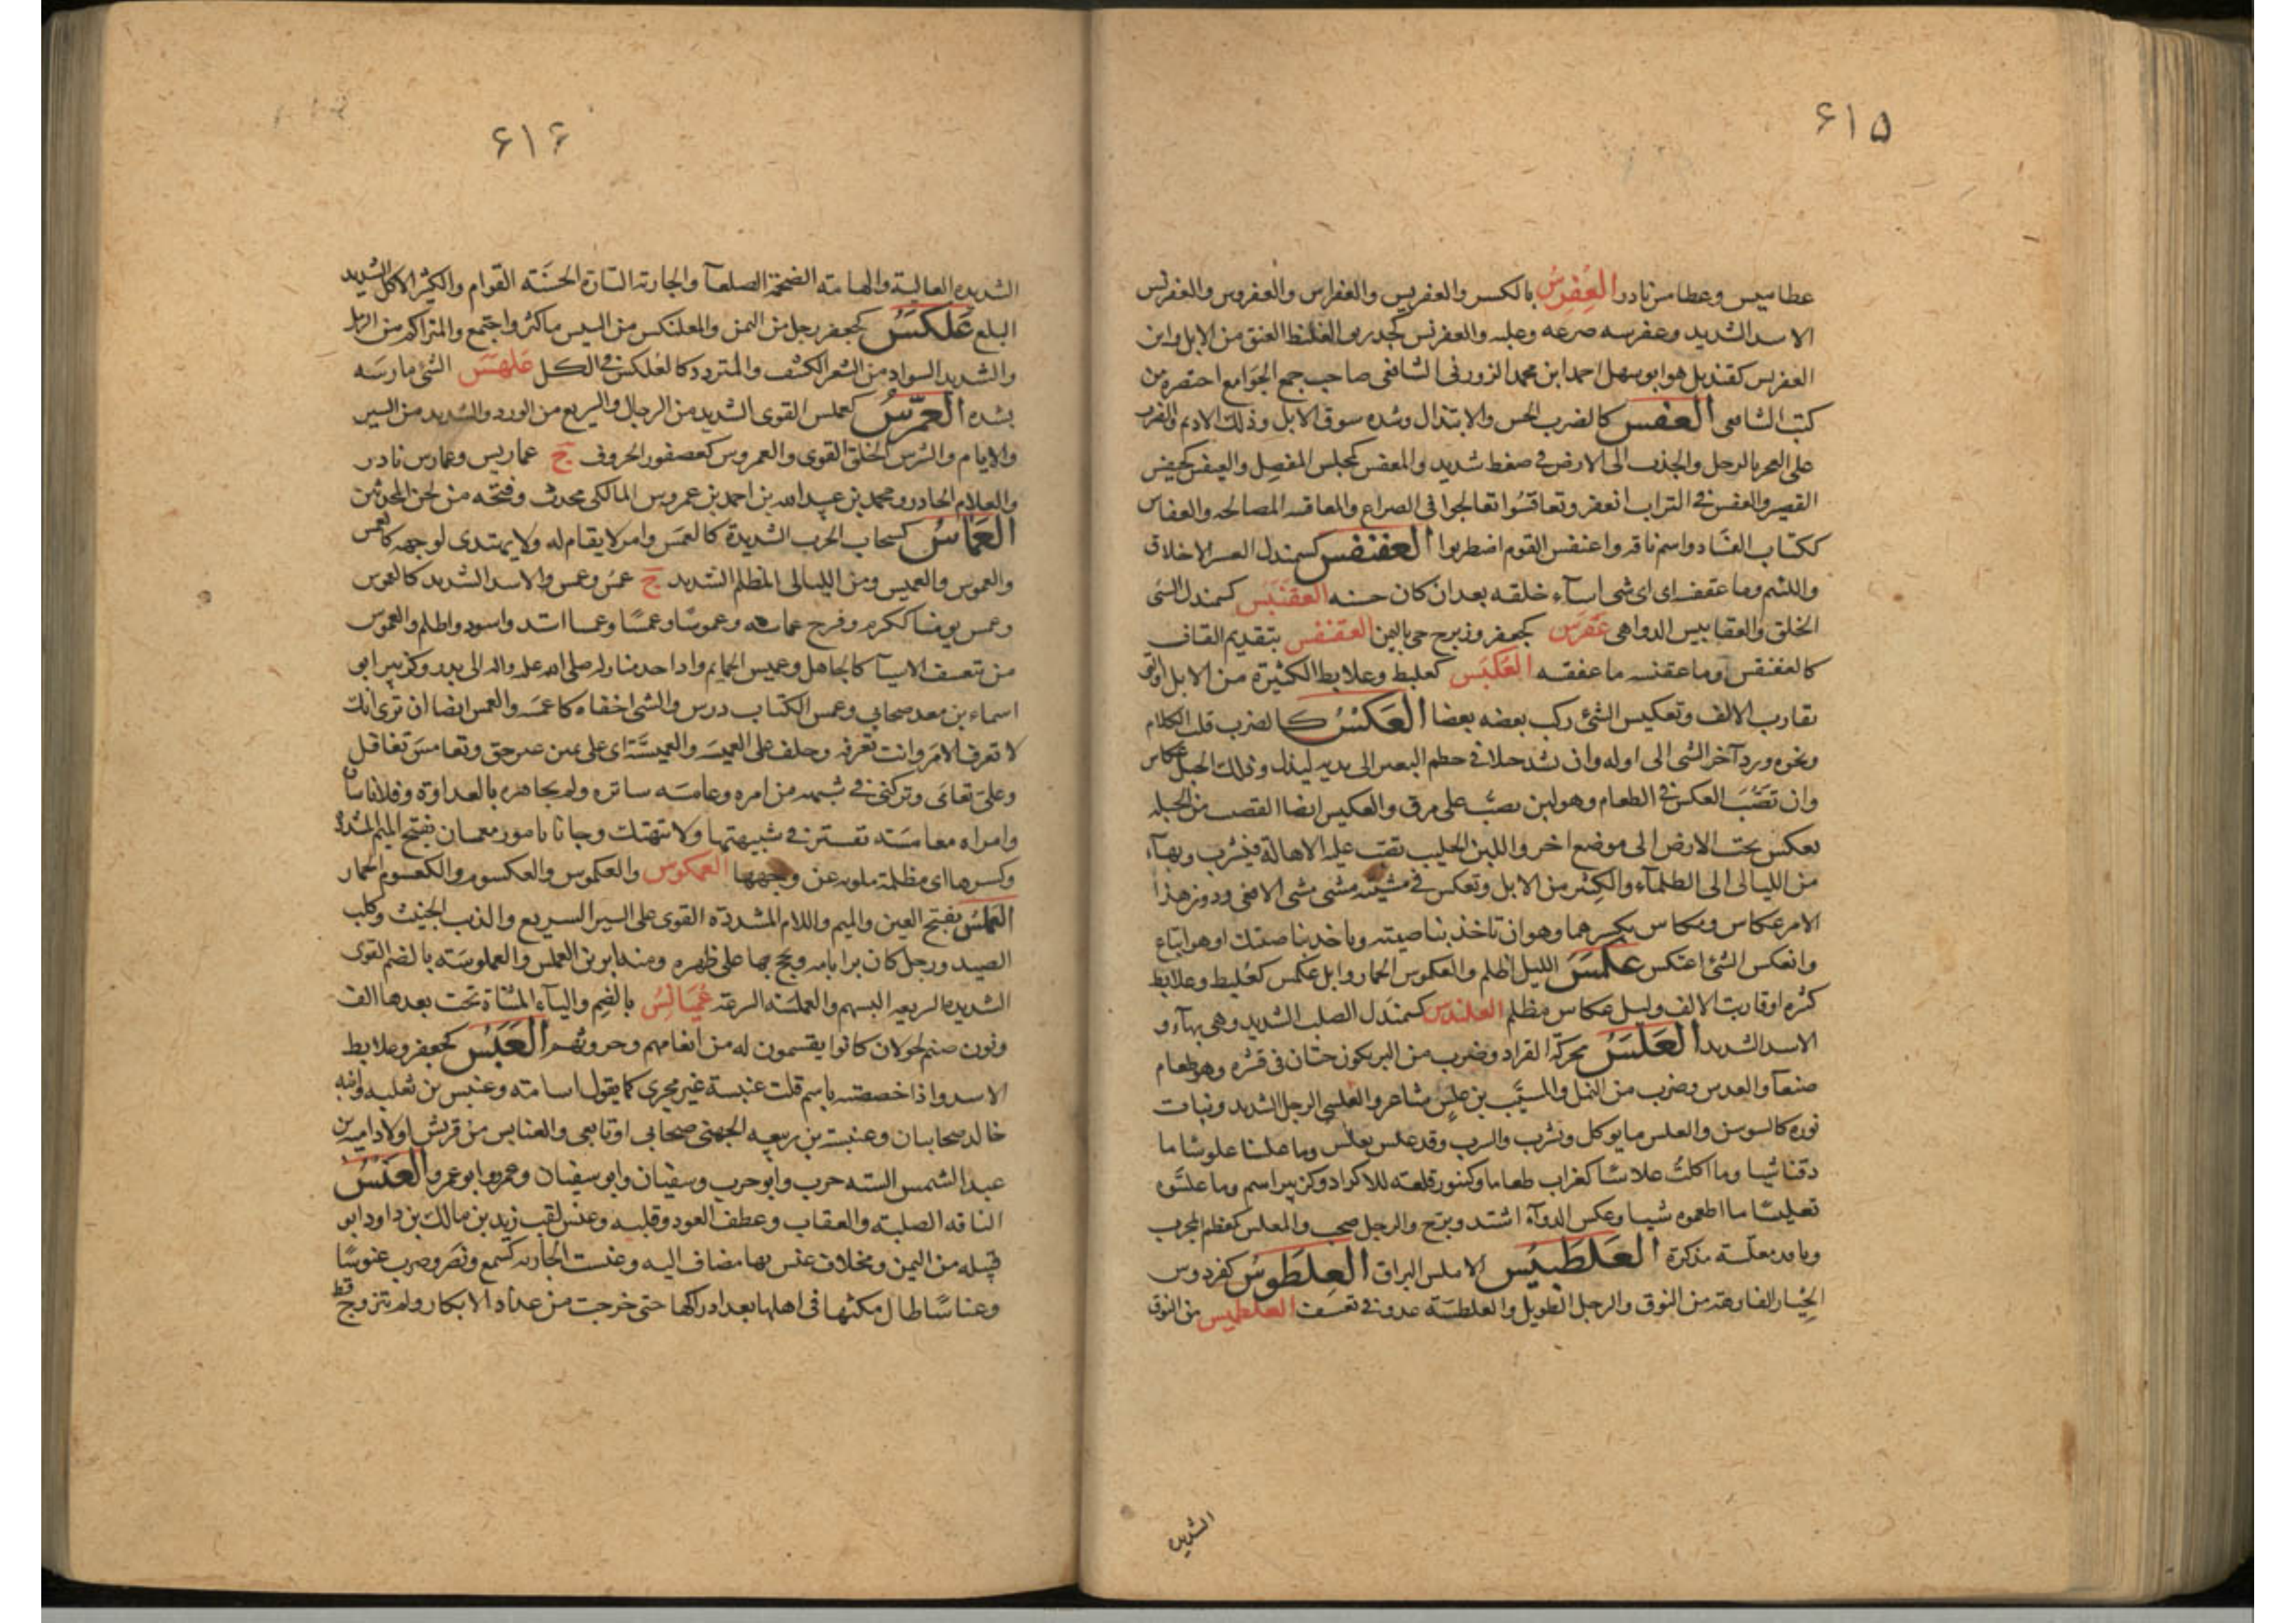 ٦١٥
عطاميس وعطامس نادر العفرس بالكسر والعفريس والعفراس والعفروس والعفرنس
الاسد الشديد وعفرسه صرعه وغلبه والعفرنس كجدر والغليظ العنق من الابل وابن
العفريس كقنديل هو ابو سهل احمد ابن محمد الزوزنى الشافعى صاحب جمع الجوامع اختصره من
كتب الشافعى العفس كالضرب الحبس والابتذال وشده سوق الابل وذلك الاديم والضرب
على العجز بالرجل والجذب الى الارض فى ضغط شديد والمعفس كمجلس المفصل والعيفس كحيفس
القصير والعفس فى التراب انعفر وتعافسوا تعالجوا فى الصراع والمعافسه المعالجه والعفاس
ككتاب الفساد واسم ناقه واعتفس القوم اضطربوا العفنقس كسمندل العسر الاخلاق
واللئيم وما عقفسه اى اى شى اسآء خلقه بعد ان كان حسنه العقنبس كسمندل السئ
الخلق والعقابيس الدواهى عقرس كجعفر وزبرج حى باليمن العقنفس بتقديم القاف
كالعفنقس وما عقفسه ما عفقسه العكبس كعلبط وعلابط الكثيرة من الابل او التى
تقارب الالف وتعكبس الشئ ركب بعضه بعضا العكس كالضرب قلب الكلام
ونحوه ورد آخر الشى الى اوله وان تشد حبلا فى خطم البعير الى يديه ليذل وذلك الحبل عكاس
وان تصب العكيس فى الطعام وهو لبن يصب على مرق والعكيس ايضا القضيب من الحبله
يعكس تحت الارض الى موضع اخر واللبن الحليب تصب عليه الاهالة فيشرب وبهآء
من الليالى الى الظلمآء والكثير من الابل وتعكس فى مشيته مشى مشى الافعى ودون هذا
الامر عكاس ومكاس بكسرهما وهو ان تاخذ بناصيته وياخذ بناصيتك او هو اتباع
وانعكس الشئ اعتكس عكمس الليل اظلم والعكموس الحمار وابل عكمس كعلبط وعلابط
كثرة او قاربت الالف وليل عكامس مظلم العلندس كسمندل الصلب الشديد وهى بهآء و
الاسد الشديد العلس محركة القراد وضرب من البر يكون حبتان فى قشره وهو طعام
صنعآ والعدس وضرب من النمل والمسيب بن علس شاعر والعلسى الرجل الشديد ونبات
نوره كالسوسن والعلس ما يوكل ويشرب والشرب وقد علس يعلس وما علسنا علوسا ما
ذقنا شيا وما اكلت علاسا كغراب طعاما وكتنور قلعة للاكراد وكزبير اسم وما علسوه
تعليسا ما اطعموه شيا وعلس الدآء اشتد وبرح والرجل صخب والمعلس كمعظم المجرب
وناقه معلسة مذكرة العلطبيس الاملس البراق العلطوس كفردوس
الخيار الفارهة من النوق والرجل الطويل والعلطسة عدو فى تعسف العلطميس من النوق
الشديده
٦١٦
الشديده العالية والهامة الضخمة الصلعآ والجارية التارة الحسنة القوام والكثير الاكل الشديد
البلع علكس كجعفر رجل من اليمن والمعلنكس من اليبيس ماكثر واجتمع والمتراكم من الرمل
والشديد السواد من الشعر الكثيف والمتردد كالمعلكس فى الكل علهس الشئ مارسه
بشده العمرس كعملس القوى الشديد من الرجال والسريع من الورد والشديد من السير
والايام والشرس الخلق القوى والعمروس كعصفور الخروف ج عماريس وعمارس نادر
والغلام الحادر ومحمد بن عبيد الله بن احمد بن عمروس المالكى محدث وفتحه من لحن المحدثين
العماس كسحاب الحرب الشديدة كالعمس وامر لا يقام له ولا يهتدى لوجهه كالعمس
والعموس والعميس ومن الليالى المظلم الشديد ج عمس وعمس والاسد الشديد كالعموس
وعمس يومنا ككرم وفرح عماسه وعموسا وعمسا وعمسا اشتد واسود واظلم والعموس
من تعسف الاشيآ كالجاهل وعميس الحمايم واد احد منازله صلى الله عليه واله الى بدر وكزبير ابى
اسماء بن معد صحابى وعمس الكتاب درس والشى اخفاه كاعمسه والعمس ايضا ان ترى انك
لا تعرف الامر وانت تعرفه وحلف على العميسه والعميسّة اى على يمين غير حق وتعامس تغافل
وعلى تعامى وتركنى فى شبهه من امره وعامسه ساتره ولم يجاهره بالعداوة وفلانا ساره
وامراه معامسة تتستر فى شبيبتها ولا تتهتك وجانا بامور معمسات بفتح الميم المشدده
وكسرها اى مظلمة ملويه عن وجهها العمكوس والعكموس والعكسوم والكعسوم الحمار
العملس بفتح العين والميم واللام المشددة القوى على السير السريع والذئب الخبيث وكلب
الصيد ورجل كان برا بامه ويحج بها على ظهره ومنه ابر من العملس والعملوسة بالضم القوس
الشديده السريعه السهم والعملسة السرعة عميانس بالضم والياء المثناة تحت بعدها الف
ونون صنم لخولان كانوا يقسمون له من انعامهم وحروثهم العنبس كجعفر وعلابط
الاسد واذا خصصته باسم قلت عنبسة غير مجرى كما يقول اسامة وعنبس بن ثعلبه وابنه
خالد صحابيان وعنبسة بن ربيعه الجهنى صحابى او تابعى والعنابس من قريش اولاد اميه بن
عبد الشمس السته حرب وابو حرب وسفيان وابو سفيان وعمرو وابو عمرو العنس
الناقه الصلبة والعقاب وعطف العود وقلبه وعنس لقب زيد بن مالك بن داود ابو
قبيله من اليمن ومخلاف عنس بها مضاف اليه وعنست الجاريه كسمع ونصر وضرب عنوسا
وعناسا طال مكثها فى اهلها بعد ادراكها حتى خرجت من عداد الابكار ولم تتزوج قط